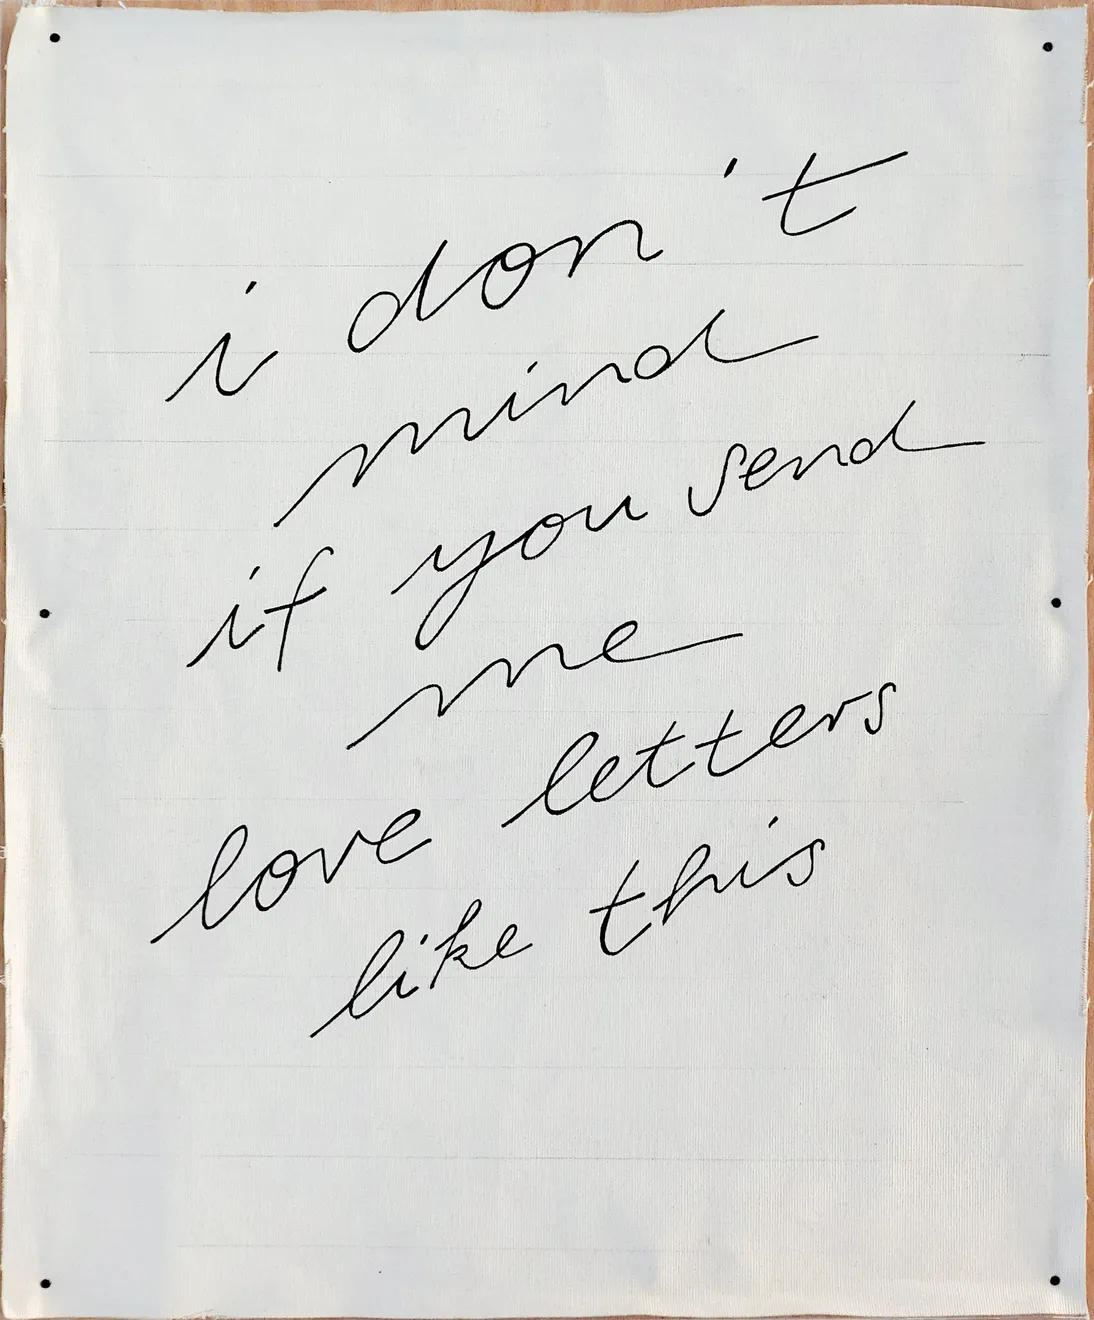 i don't
mind
if you send
me
love letters
like this